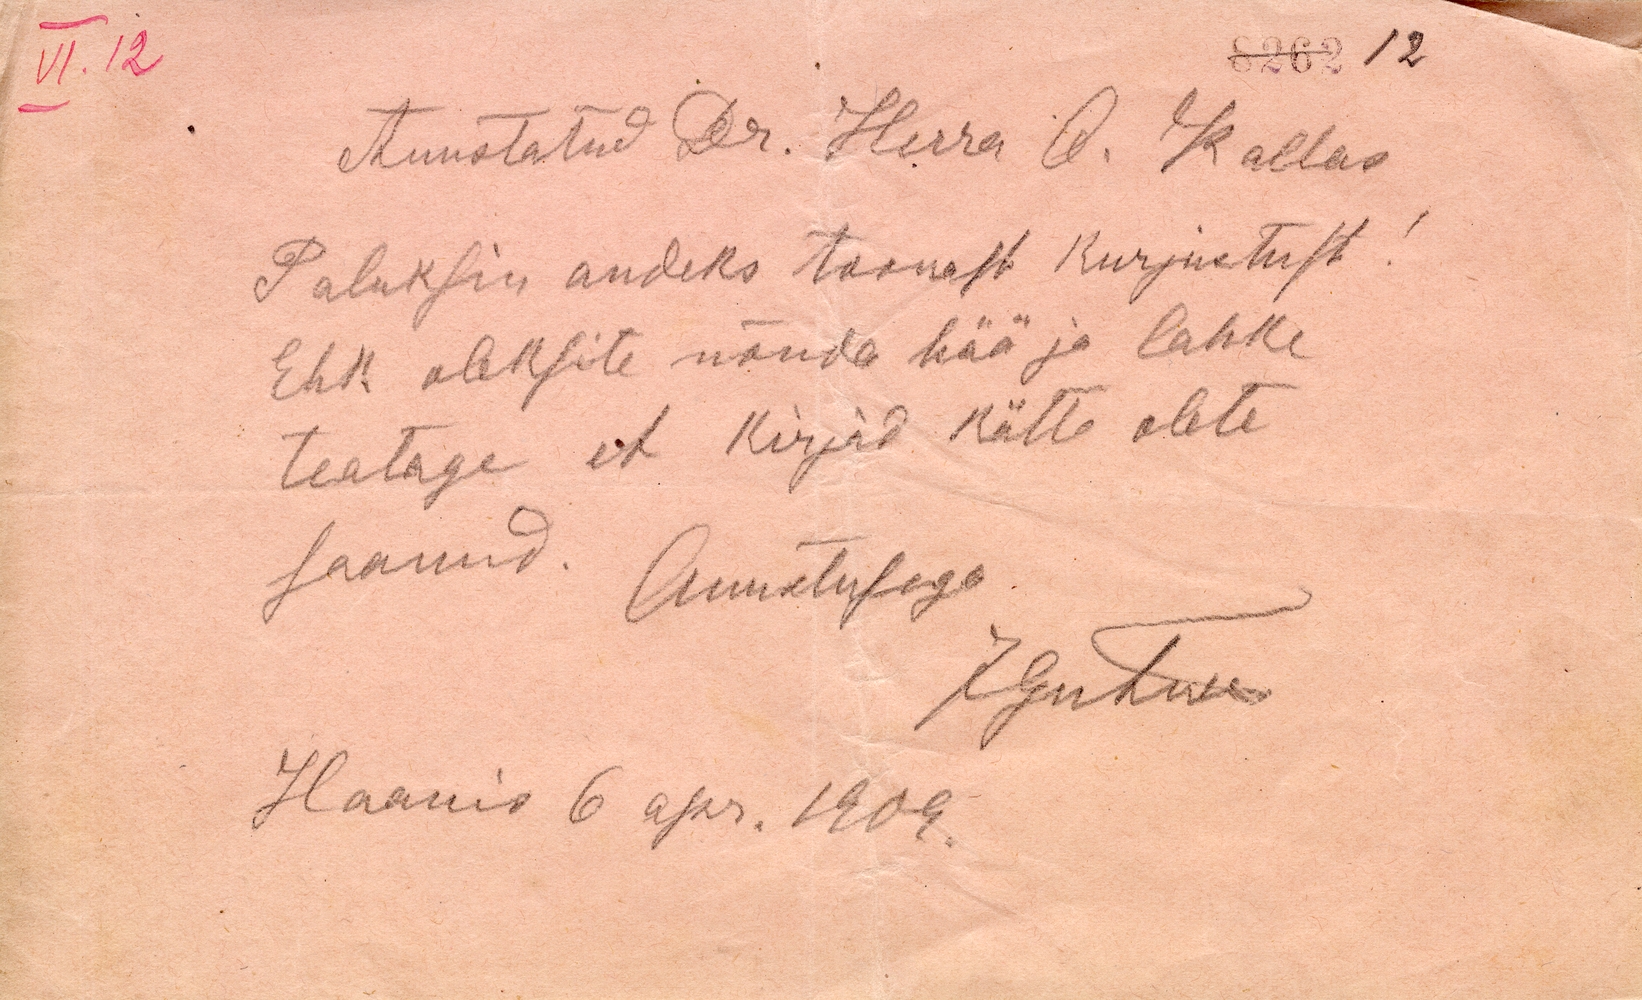 VI. 12
8262 12
Auustatud Dr. Herra O. Kallas
Palukſin andeks toonaſt kurjustuſt!
Ehk olekſite nõnda hää ja lahke
teatage et kirjad kätte olete
ſaanud. Auustuſega
Haanis 6 apr. 1909.